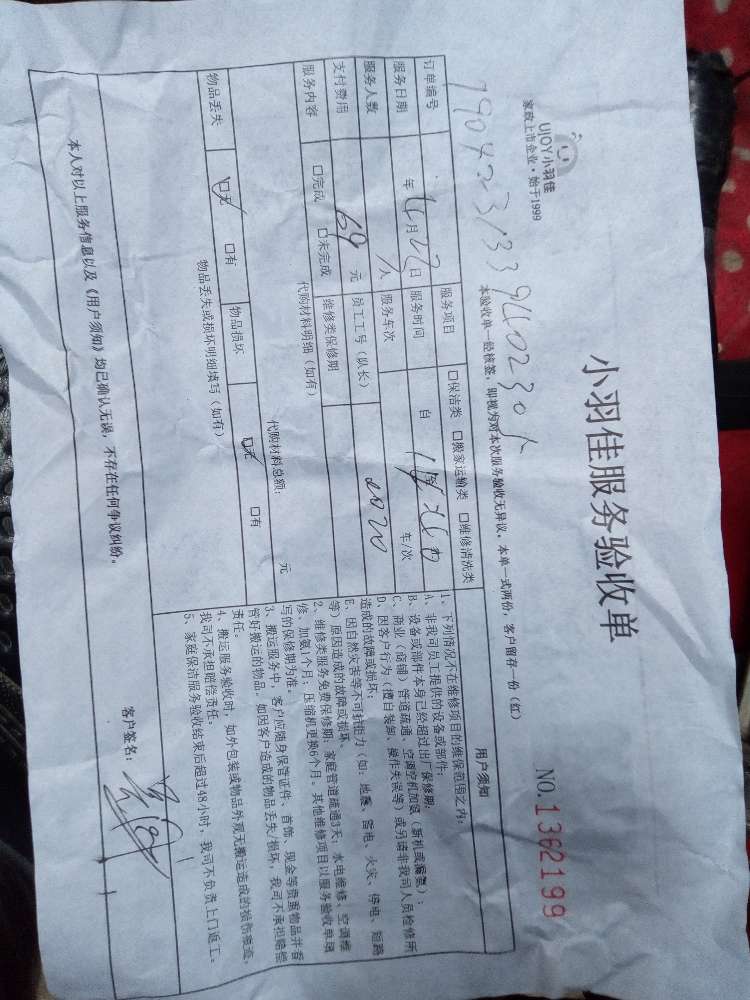 UJOY小羽佳
家政上市企业·始于1999
小羽佳服务验收单
NO.1362199
本验收单一经核签，即视为对本次服务验收无异议。本单一式两份，客户留存一份（红）
订单编号
服务项目 口保洁类 口搬家运输类 口维修清洗类
服务日期 年 4月27日 服务时间 自 至
服务人数 人 服务车次 车/次
支付费用 69 元 员工工号（队长） 2020
服务内容 口完成 口未完成 维修类保修期
代购材料明细（如有）
代购材料总额： 元
物品丢失 口无 口有 物品损坏 口无 口有
物品丢失或损坏明细填写（如有）
用户须知
1、下列情况不在维修项目的维保范围之内：
A、非我司员工提供的设备或部件；
B、设备或部件本身已经超过出厂保修期；
C、商业（商铺）管道疏通、空调空机加氨（新机或搬氨）；
D、因客户行为（擅自装卸、操作失误等）或另请非我司人员检修所
造成的故障或损坏；
E、因自然灾害等不可抗能力（如：地震、雷电、火灾、停电、短路
等）原因造成的故障或损坏。
2、维修类服务免费保修期：家庭管道疏通3天；水电维修、空调维
修、加氨1个月；压缩机更换6个月。其他维修项目以服务验收单填
写的保修期为准。
3、搬运服务中，客户应随身保管证件、首饰、现金等贵重物品并看
管好搬运的物品。如因客户造成的物品丢失/损坏，我司不承担赔偿
责任。
4、搬运服务验收时，如外包装或物品外观无搬运造成的损伤痕迹，
我司不承担赔偿责任。
5、家庭保洁服务验收结束后超过48小时，我司不负责上门返工。
本人对以上服务信息以及《用户须知》均已确认无误，不存在任何争议纠纷。
客户签名：